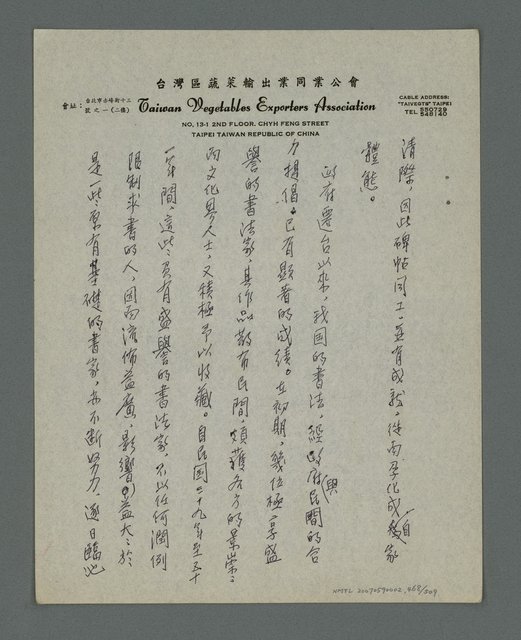 台灣區蔬菜輸出業同業公會
會址：台北市赤峰街十三號之一（二樓）
Taiwan Vegetables Exporters Association
CABLE ADDRESS:
"TAIVEGTS" TAIPEI
TEL 550729
548140
NO. 13-1 2ND FLOOR. CHYH FENG STREET
TAIPEI TAIWAN REPUBLIC OF CHINA
清際，因此碑帖同工，並有成就，從而孕化成自家
體態。
政府遷台以來，我国的書法，經政府與民間的合
力提倡，已有顯著的成績。在初期，幾位極享盛
譽的書法家，其作品散布民間，頗獲各方的景崇；
而文化界人士，又積極予以收藏。自民国三十九年至五十
一年間，這些負有盛譽的書法家，不以任何潤例
限制求書的人，因而流佈益廣，影響益大；於
是一些原有基礎的書家，亦不断努力，逐日臨池
NMTL 20070590002, 468/509